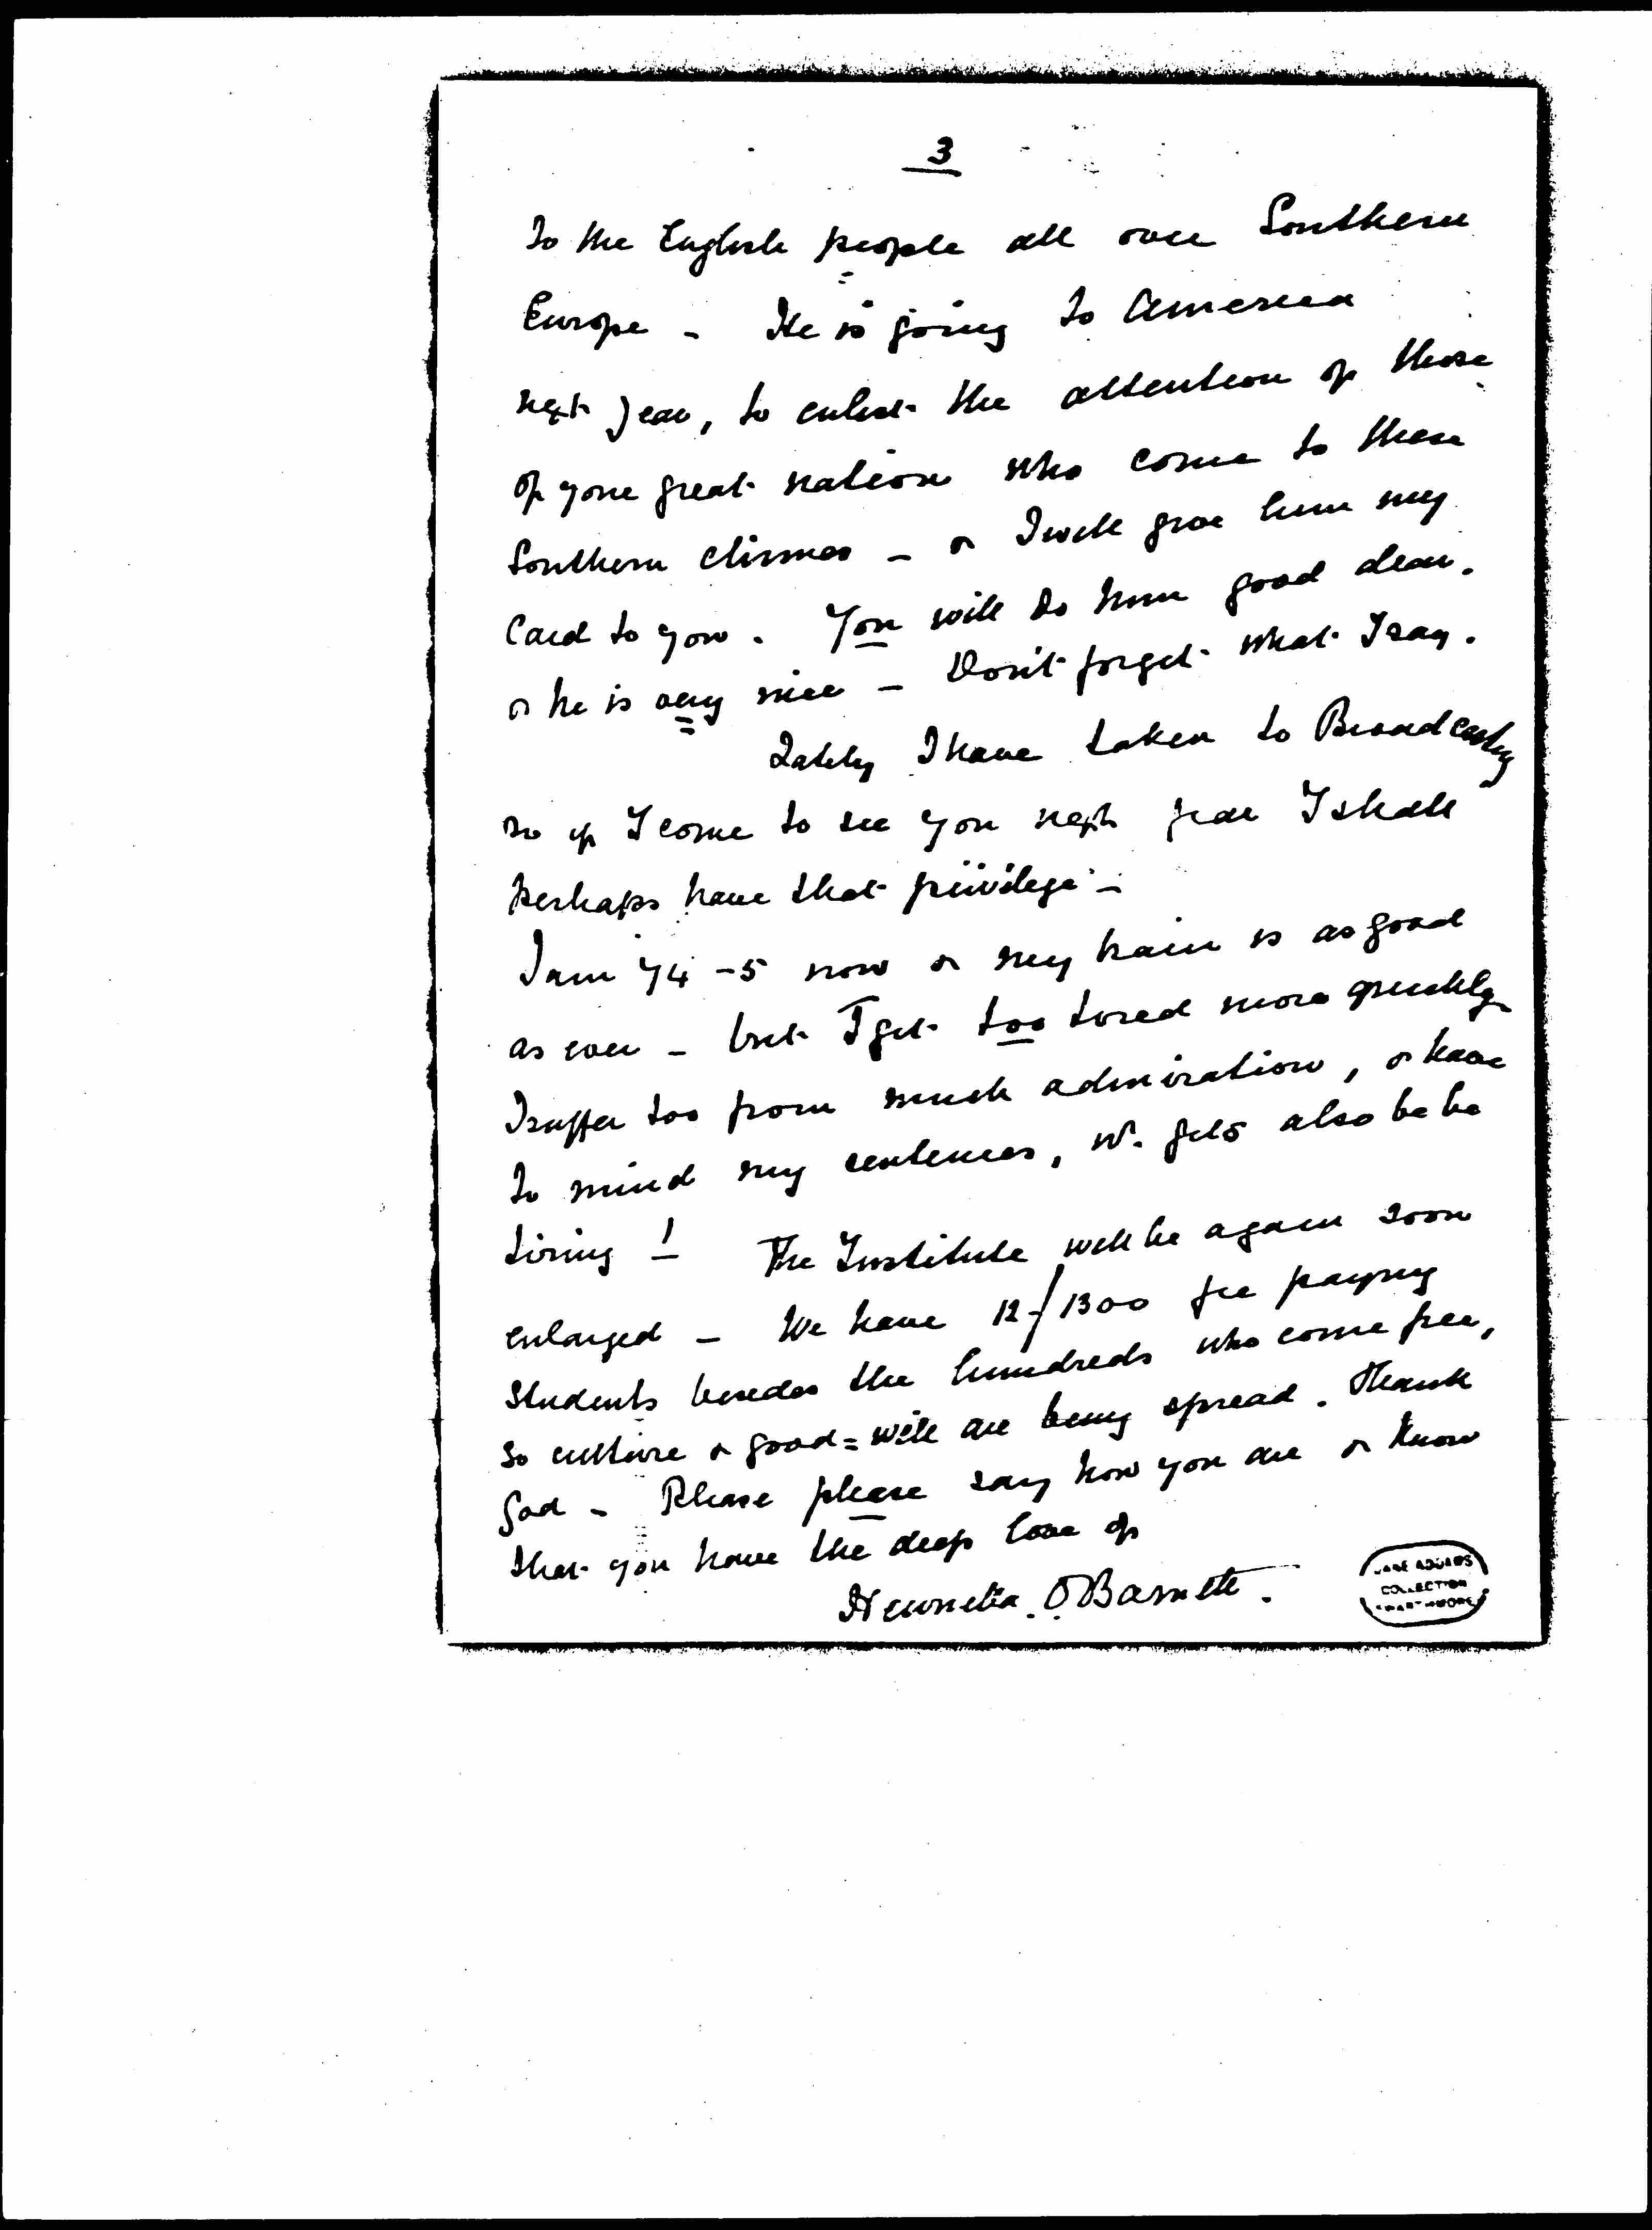 3
to the English people all over Southern
Europe - He is going to America
next year, to enlist the attention of those
of your great nation who come to these
Southern climes - & I will give him my
card to you. You will do him good dear.
& he is very nice - Don't forget what I say.
Lately I have taken to Broadcasting
so if I come to see you next year I shall
perhaps have that privilege -
I am 74-5 now & my brain is as good
as ever - but I get too tired more quickly
I suffer too from much admiration, & have
to mind my sentences, wh. gets also to be
tiring! The Institute will be again soon
enlarged - We have 12-/1300 fee paying
Students besides the hundreds who come free,
so culture & good=will are being spread. Thank
God - Please please say how you are & know
that you have the deep love of
Henrietta. O Barnett.
JANE ADDAMS
COLLECTION
SWARTHMORE